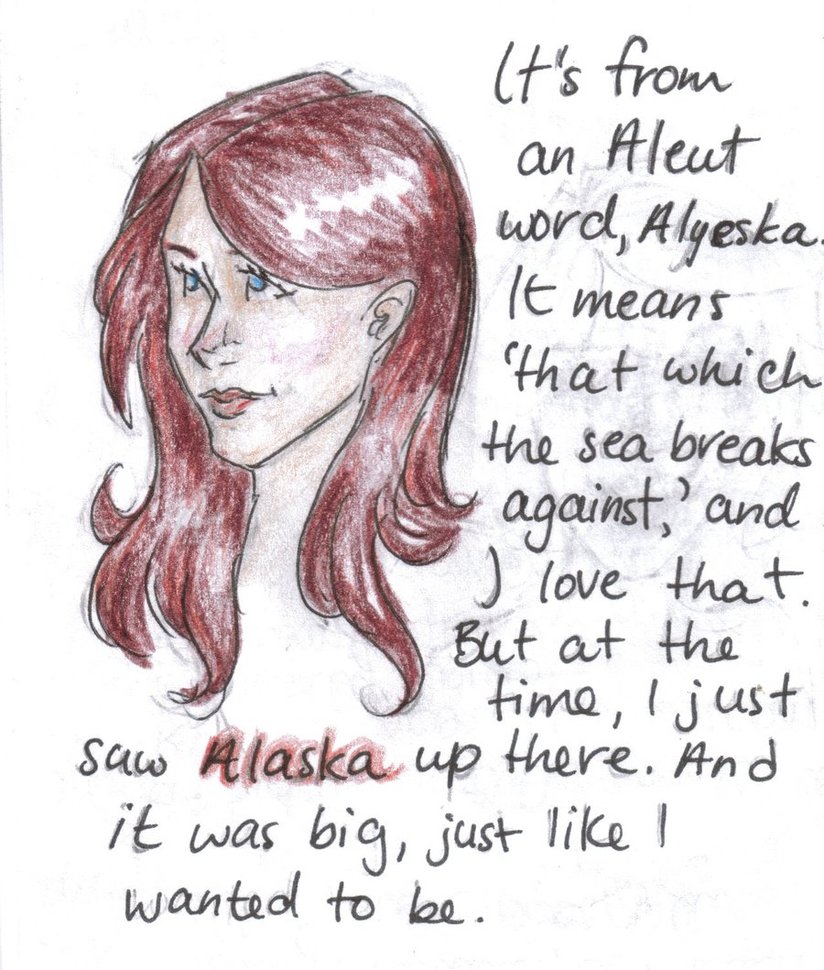 It's from
an Aleut
word, Alyeska.
It means
'that which
the sea breaks
against,' and
I love that.
But at the
time, I just
saw Alaska up there. And
it was big, just like I
wanted to be.